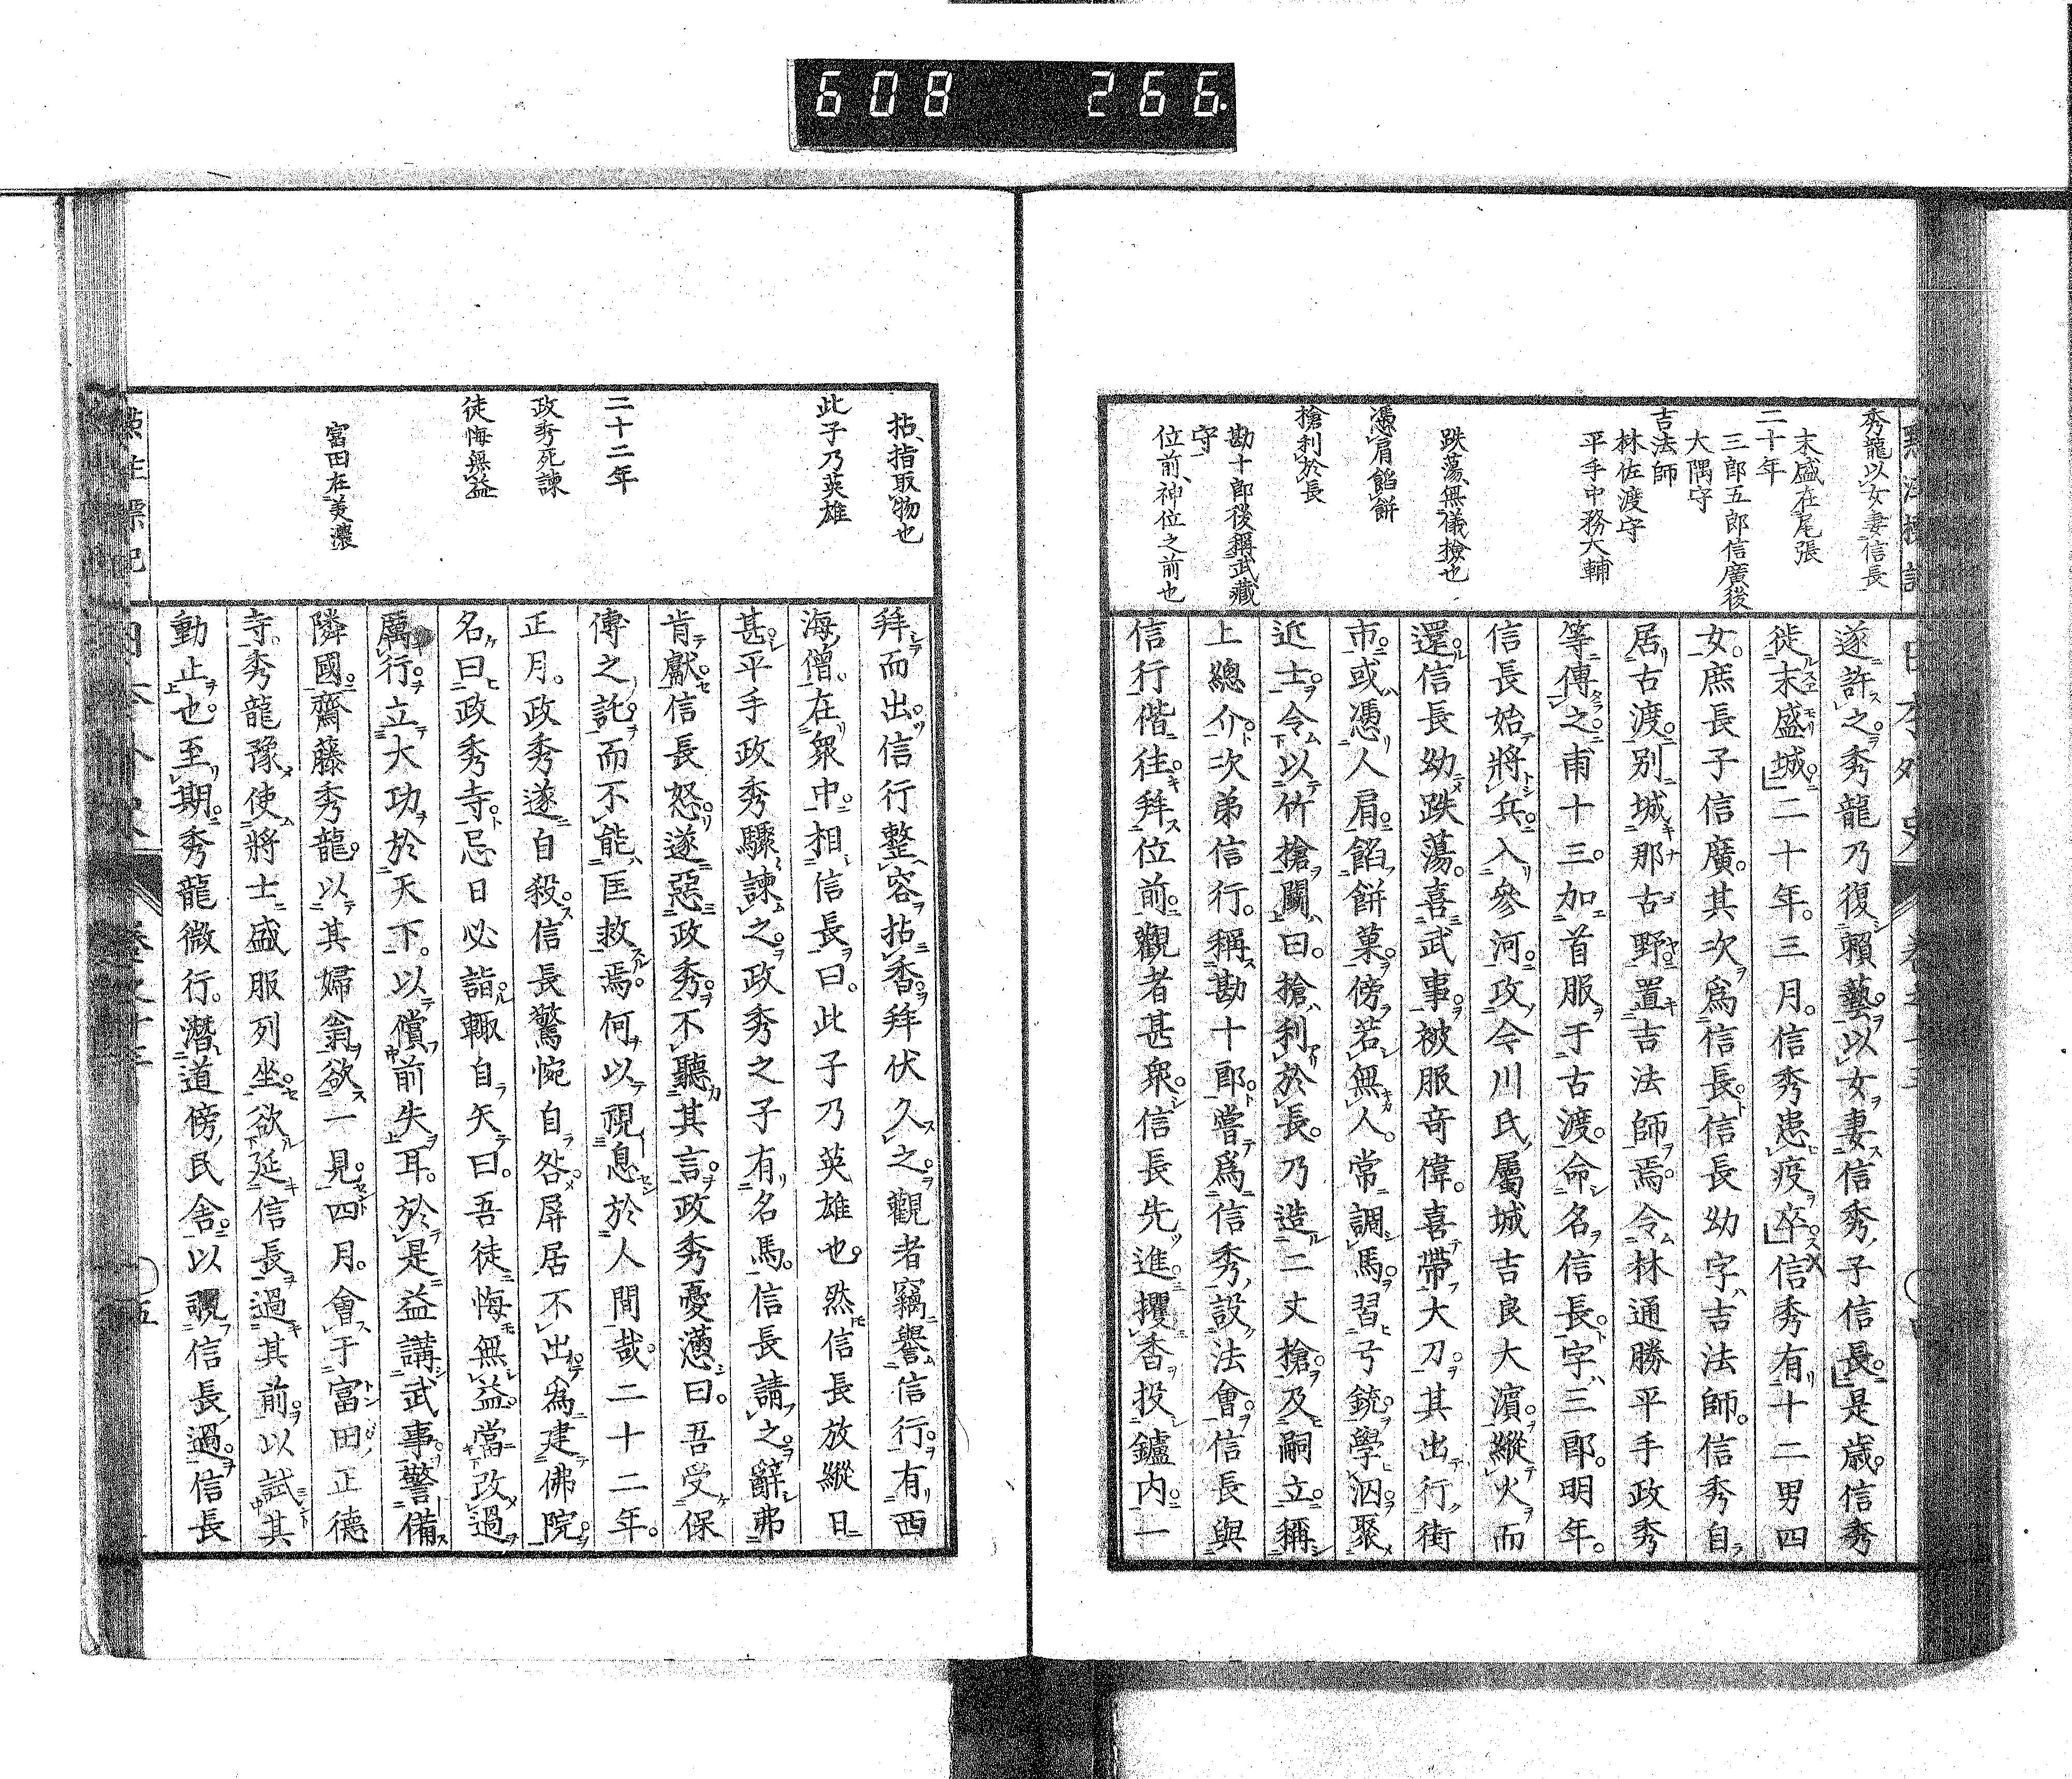 608 266
秀龍以女妻信長
末盛在尾張
二十年
三郎五郎信廣後
大隅守
吉法師
林佐渡守
平手中務大輔
跌蕩、無儀撿也
憑肩餡餅
槍利於長
勘十郎後稱武藏
守
位前、神位之前也
日本外史
遂許之秀龍乃復賴藝以女妻信秀子信長是歲信秀
徙末盛城二十年三月信秀患疫卒信秀有十二男四
女庶長子信廣其次爲信長信長幼字吉法師信秀自
居古渡別城那古野置吉法師焉令林通勝平手政秀
等傅之甫十三加首服于古渡命名信長字三郎明年
信長始將兵入參河攻今川氏屬城吉良大濱縱火而
還信長幼跌蕩喜武事被服奇偉喜帶大刀其出行街
市或憑人肩餡餅菓傍若無人常調馬習弓銃學泅聚
近士令以竹槍鬭曰槍利於長乃造二丈槍及嗣立稱
上總介次弟信行稱勘十郎嘗爲信秀設法會信長與
信行偕往拜位前觀者甚衆信長先進攫香投鑪内一
拈、指取物也
此子乃英雄
二十二年
政秀死諫
徒悔無益
富田在美濃
拜而出信行整容拈香拜伏久之觀者竊譽信行有西
海僧在衆中相信長曰此子乃英雄也然信長放縱日
甚平手政秀驟諫之政秀之子有名馬信長請之辭弗
肯獻信長怒遂惡政秀不聽其言政秀憂懣曰吾受保
傅之託而不能匡救焉何以視息於人間哉二十二年
正月政秀遂自殺信長驚惋自咎屏居不出爲建佛院
名曰政秀寺忌日必詣輙自矢曰吾徒悔無益當改過
厲行立大功於天下以償前失耳於是益講武事警備
隣國齋藤秀龍以其婦翁欲一見四月會于富田正德
寺秀龍豫使將士盛服列坐欲延信長過其前以試其
動止也至期秀龍微行潛道傍民舍以覗信長過信長
五